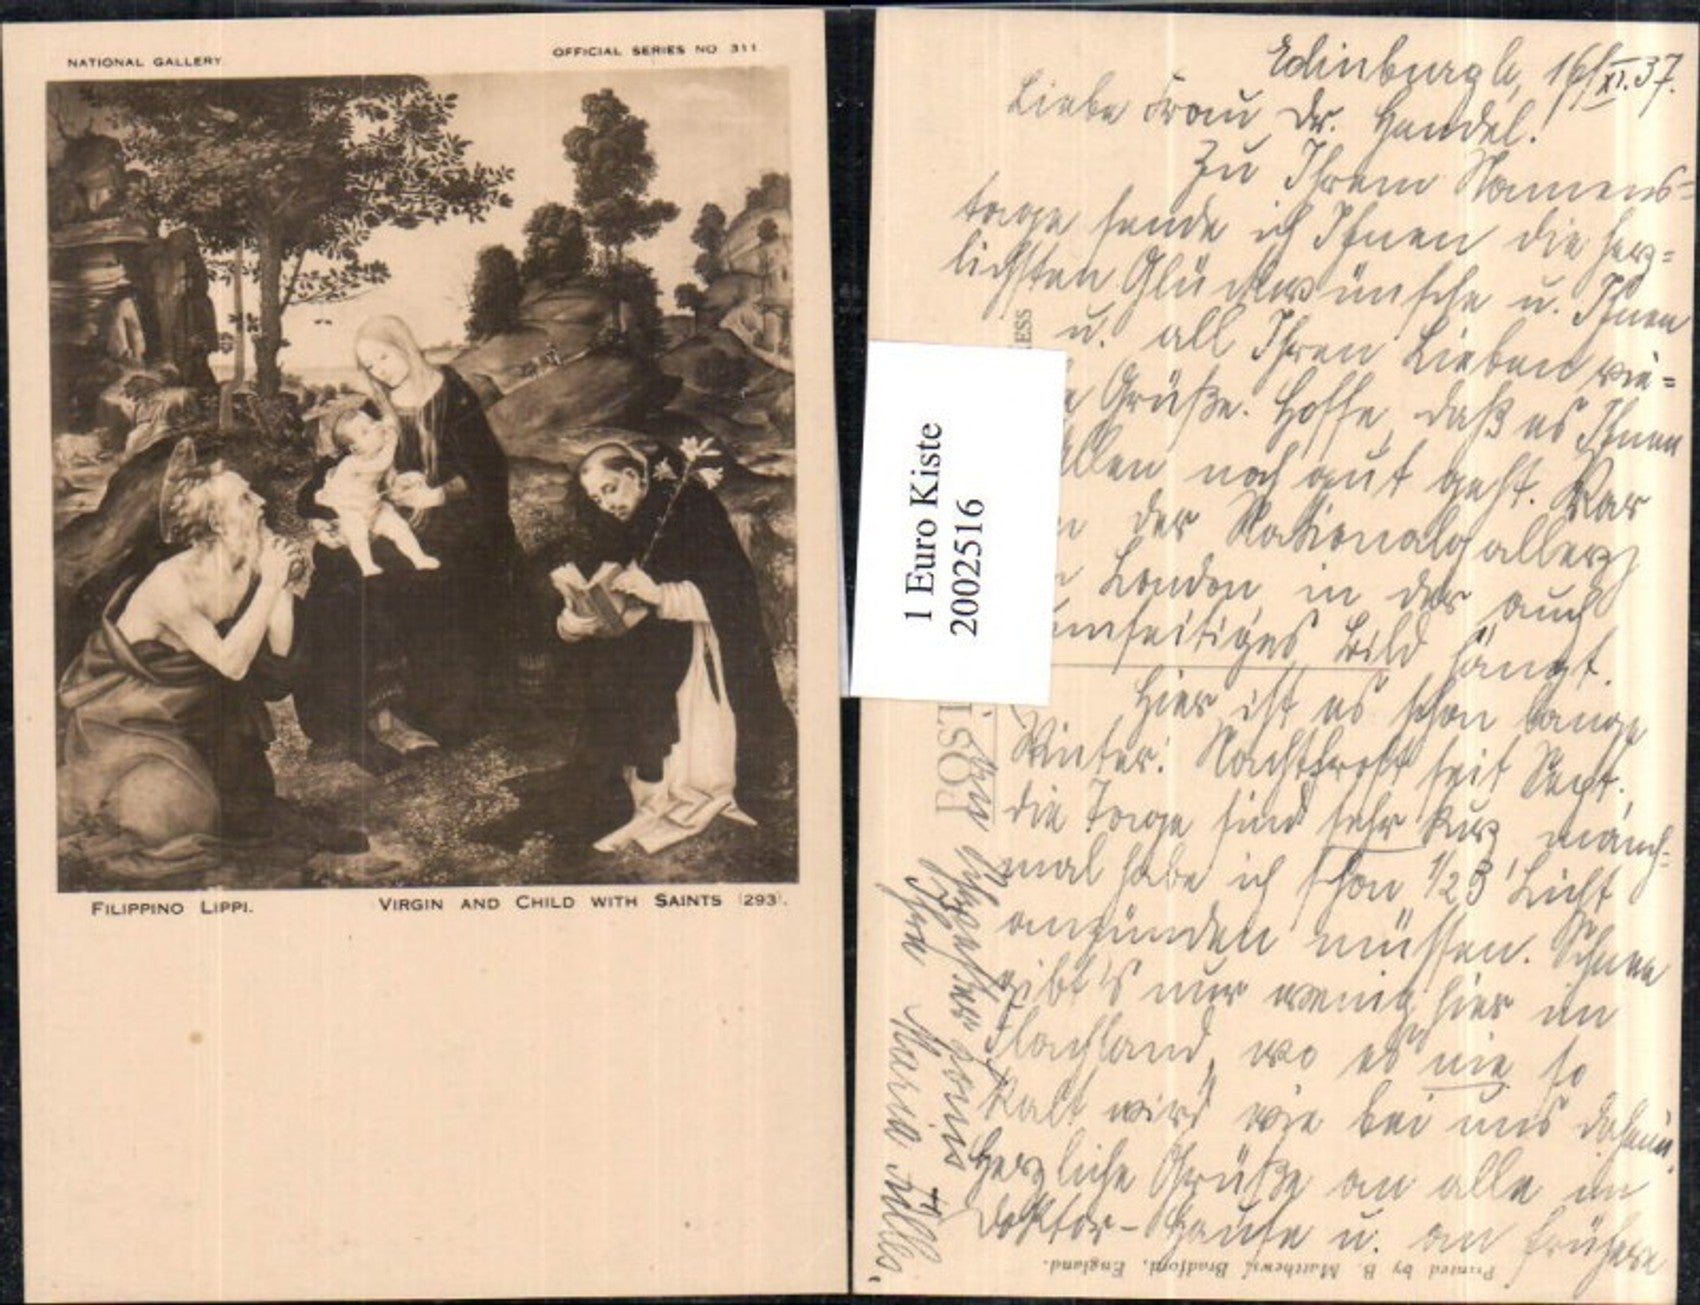 NATIONAL GALLERY
OFFICIAL SERIES NO 311
FILIPPINO LIPPI.
VIRGIN AND CHILD WITH SAINTS (293).
1 Euro Kiste
2002516
ESS
POST
Edinburgh, 16/XI.37.
Liebe Frau Dr. Handel!
Zu Ihrem Namens=
tage sende ich Ihnen die herz=
lichsten Glückwünsche u. Ihnen
u. all Ihren Lieben vie=
e Grüße. Hoffe, daß es Ihnen
allen noch gut geht. War
in der Nationalgallery
London in der auch
umseitiges Bild hängt.
Hier ist es schon lange
Winter! Nachtfrost seit Sept.,
die Tage sind sehr kurz manch=
mal habe ich schon 1/2 3 Licht
anzünden müssen. Schnee
gibt's nur wenig hier im
Flachland, wo es nie so
kalt wird wie bei uns daheim.
Herzliche Grüße an alle im
Doktor-Hause u. an frühere
Schwester
Ihre Maria
Printed by B. Matthews, Bradford, England.